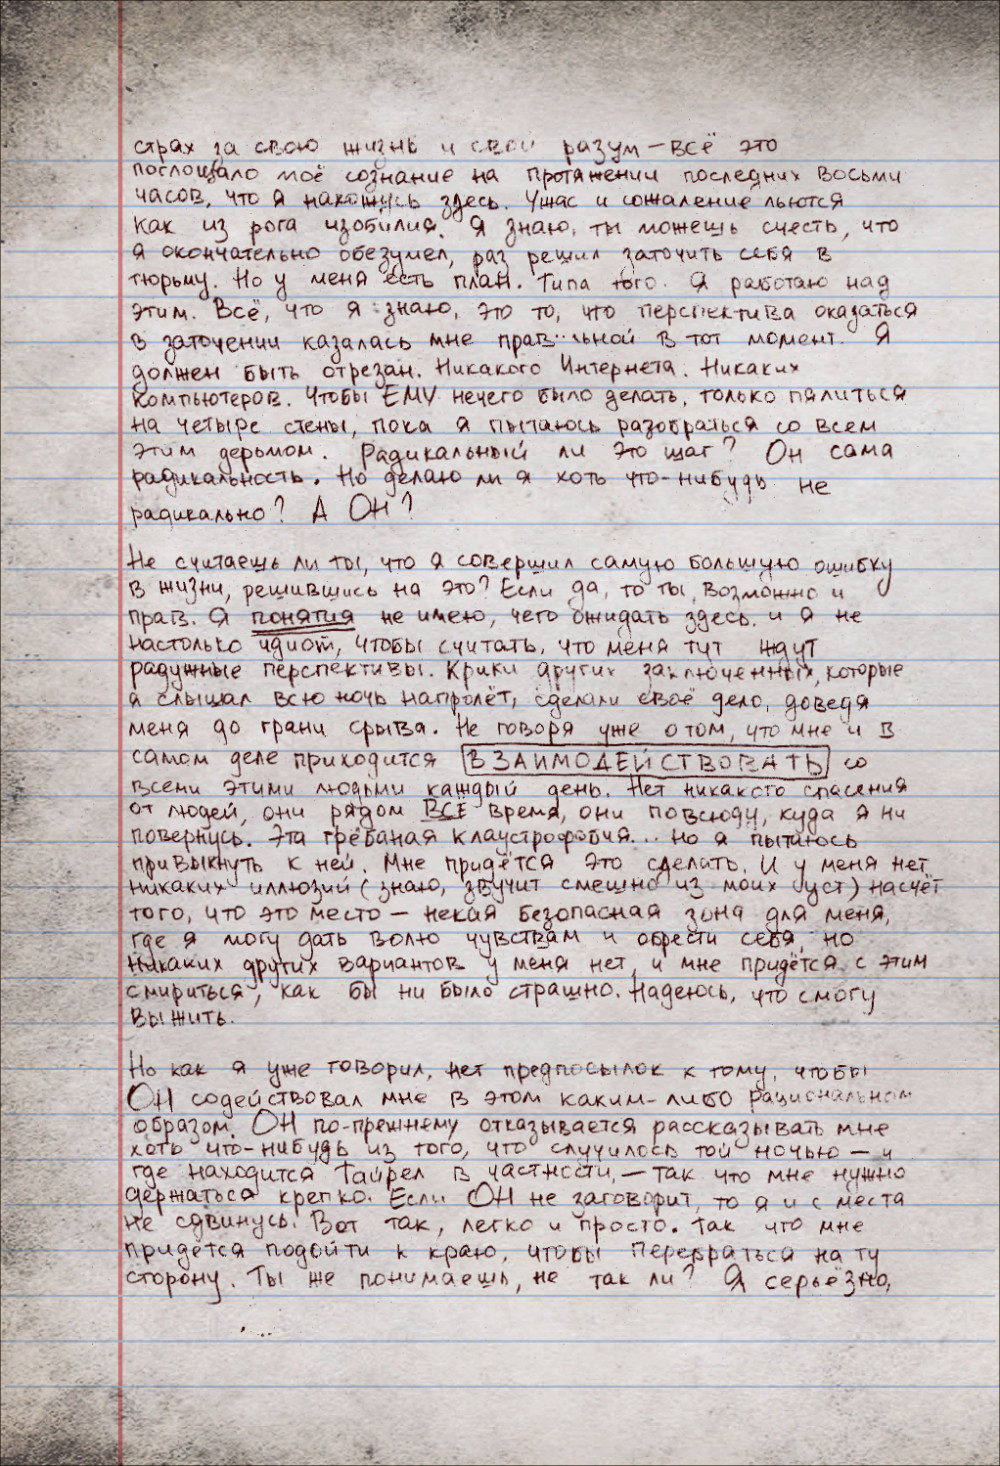 страх за свою жизнь и свой разум — всё это
поглощало моё сознание на протяжении последних восьми
часов, что я нахожусь здесь. Ужас и сожаление льются
как из рога изобилия. Я знаю, ты можешь счесть, что
я окончательно обезумел, раз решил заточить себя в
тюрьму. Но у меня есть план. Типа того. Я работаю над
этим. Всё, что я знаю, это то, что перспектива оказаться
в заточении казалась мне правильной в тот момент. Я
должен быть отрезан. Никакого Интернета. Никаких
компьютеров. Чтобы ЕМУ нечего было делать, только пялиться
на четыре стены, пока я пытаюсь разобраться со всем
этим дерьмом. Радикальный ли это шаг? Он сама
радикальность. Но делаю ли я хоть что-нибудь не
радикально? А ОН?
Не считаешь ли ты, что я совершил самую большую ошибку
в жизни, решившись на это? Если да, то ты, возможно и
прав. Я понятия не имею, чего ожидать здесь, и я не
настолько идиот, чтобы считать, что меня тут ждут
радужные перспективы. Крики других заключенных, которые
я слышал всю ночь напролёт, сделали своё дело, доведя
меня до грани срыва. Не говоря уже о том, что мне и в
самом деле приходится ВЗАИМОДЕЙСТВОВАТЬ со
всеми этими людьми каждый день. Нет никакого спасения
от людей, они рядом ВСЁ время, они повсюду, куда я ни
повернусь. Эта грёбаная клаустрофобия... но я пытаюсь
привыкнуть к ней. Мне придётся это сделать. И у меня нет
никаких иллюзий (знаю, звучит смешно из моих уст) насчёт
того, что это место — некая безопасная зона для меня,
где я могу дать волю чувствам и обрести себя, но
никаких других вариантов у меня нет, и мне придётся с этим
смириться, как бы ни было страшно. Надеюсь, что смогу
выжить.
Но как я уже говорил, нет предпосылок к тому, чтобы
ОН содействовал мне в этом каким-либо рациональном
образом. ОН по-прежнему отказывается рассказывать мне
хоть что-нибудь из того, что случилось той ночью — и
где находится Тайрел в частности, — так что мне нужно
держаться крепко. Если ОН не заговорит, то я и с места
не сдвинусь. Вот так, легко и просто. Так что мне
придётся подойти к краю, чтобы перебраться на ту
сторону. Ты же понимаешь, не так ли? Я серьёзно,